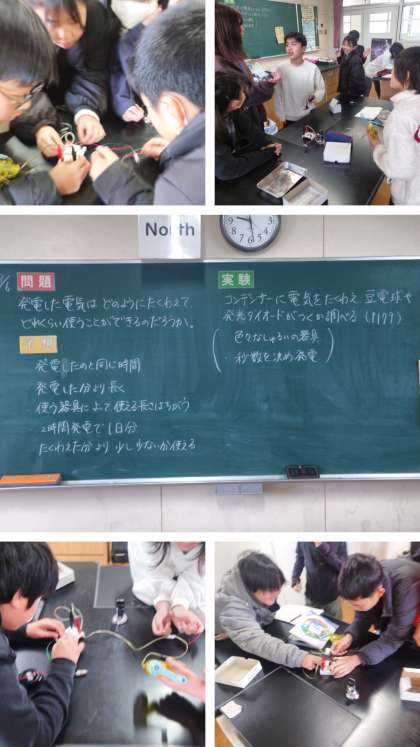 North
問題
発電した電気は どのようにたくわえて
どれくらい使うことができるのだろうか。
予想
発電したのと同じ時間
発電した分より長く
使う器具によって使える長さはちがう
2時間発電で1日分
たくわえた分より 少し少ないが使える
実験
コンデンサーに電気をたくわえ 豆電球や
発光ダイオードがつくか調べる (P199)
・色々なしゅるいの器具
・秒数を決め発電